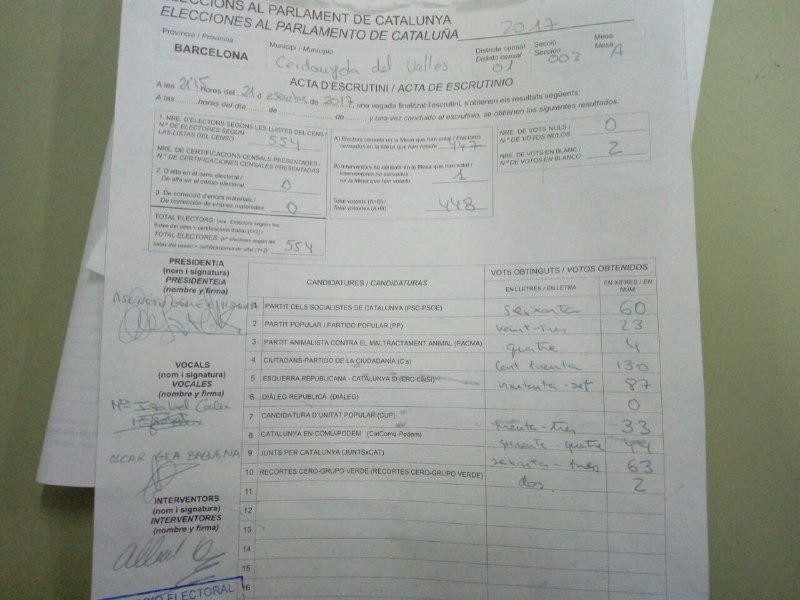 ELECCIONS AL PARLAMENT DE CATALUNYA
ELECCIONES AL PARLAMENTO DE CATALUÑA
2017
Província / Provincia
BARCELONA
Municipi / Municipio
Cerdanyola del Valles
Districte censal
Distrito censal
01
Secció
Sección
002
Mesa
Mesa
A
ACTA D'ESCRUTINI / ACTA DE ESCRUTINIO
A les 21'15 hores del 21 de de 2017, una vegada finalitzat l'escrutini, s'obtenen els resultats següents:
A las horas del día de de , y una vez concluido el escrutinio, se obtienen los siguientes resultados:
1. NRE. D'ELECTORS SEGONS LES LLISTES DEL CENS /
N.º DE ELECTORES SEGÚN
LAS LISTAS DEL CENSO
554
NRE. DE CERTIFICACIONS CENSALS PRESENTADES /
N.º DE CERTIFICACIONES CENSALES PRESENTADAS
2. D'alta en el cens electoral /
De alta en el censo electoral
0
3. De correcció d'errors materials /
De corrección de errores materiales
0
TOTAL ELECTORS:
TOTAL ELECTORES:
554
A) Electors censats en la Mesa que han votat / Electores
censados en la Mesa que han votado
447
B) Interventors no censats en la Mesa que han votat /
Interventores no censados
en la Mesa que han votado
1
Total votants (A+B) /
Total votantes (A+B)
448
NRE. DE VOTS NULS /
N.º DE VOTOS NULOS
0
NRE. DE VOTS EN BLANC /
N.º DE VOTOS EN BLANCO
2
PRESIDENT/A
(nom i signatura)
PRESIDENTE/A
(nombre y firma)
VOCALS
(nom i signatura)
VOCALES
(nombre y firma)
Mª Isabel
OSCAR
INTERVENTORS
(nom i signatura)
INTERVENTORES
(nombre y firma)
ELECTORAL
CANDIDATURES / CANDIDATURAS
VOTS OBTINGUTS / VOTOS OBTENIDOS
EN LLETRES / EN LETRA
EN XIFRES / EN NÚM.
1 PARTIT DELS SOCIALISTES DE CATALUNYA (PSC-PSOE) seixanta 60
2 PARTIT POPULAR / PARTIDO POPULAR (PP) vint-tres 23
3 PARTIT ANIMALISTA CONTRA EL MALTRACTAMENT ANIMAL (PACMA) quatre 4
4 CIUTADANS-PARTIDO DE LA CIUDADANÍA (C's) Cent trenta 130
5 ESQUERRA REPUBLICANA - CATALUNYA SÍ (ERC-CatSí) 87
6 DIÀLEG REPUBLICÀ (DIÀLEG) 0
7 CANDIDATURA D'UNITAT POPULAR (CUP) trenta-tres 33
8 CATALUNYA EN COMÚ-PODEM (CatComú-Podem) 44
9 JUNTS PER CATALUNYA (JUNTSxCAT) seixanta-tres 63
10 RECORTES CERO-GRUPO VERDE (RECORTES CERO-GRUPO VERDE) dos 2
11
12
13
14
15
16